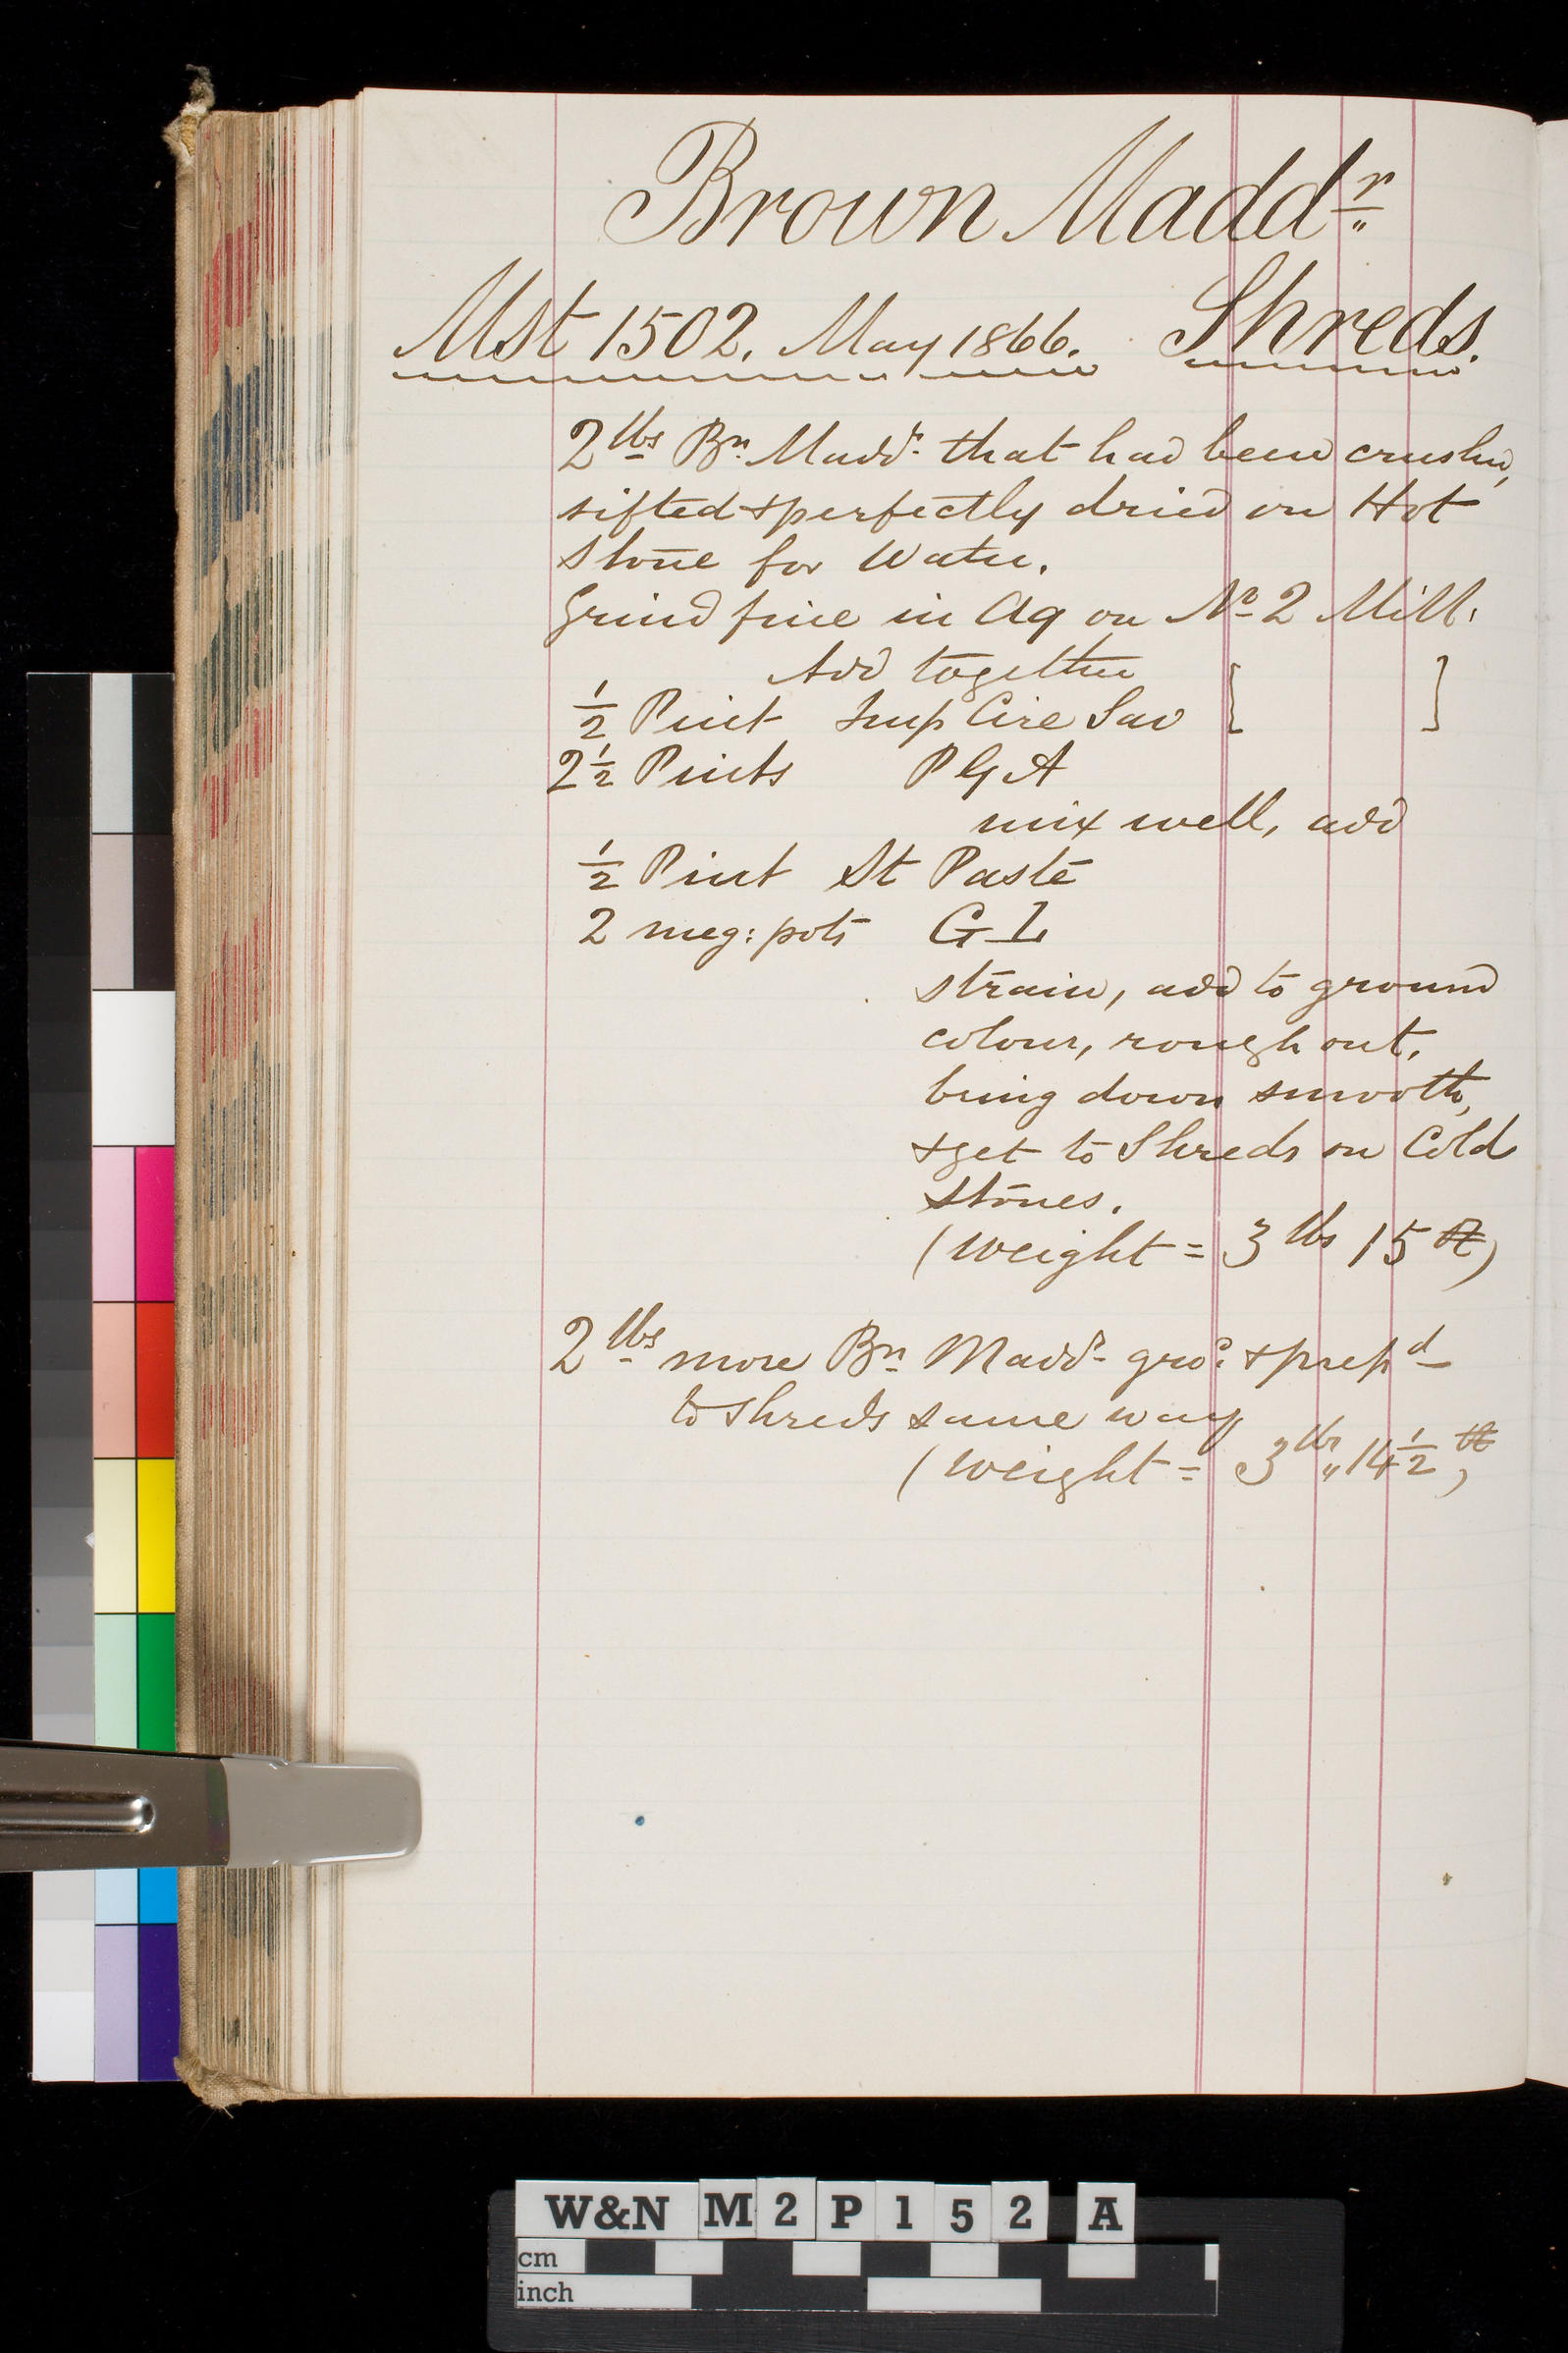 Brown Maddr
Mst 1502. May 1866. Shreds.
2 lbs Bn Maddr that had been crushed,
sifted & perfectly dried on Hot
Stone for Water.
Grind fine in Aq on No 2 Mill.
Add together
1/2 Pint Imp Cire Sav [ ]
2 1/2 Pints P G A
mix well, add
1/2 Pint St Paste
2 meg: pots G L
strain, add to ground
colour, rough out,
bring down smooth,
& get to Shreds on Cold
Stones.
(Weight = 3 lbs 15
2 lbs more Bn Maddr grd & prepd
to shreds same way
(Weight = 3 lbs 14 1/2
W&N M2P152 A
cm
inch